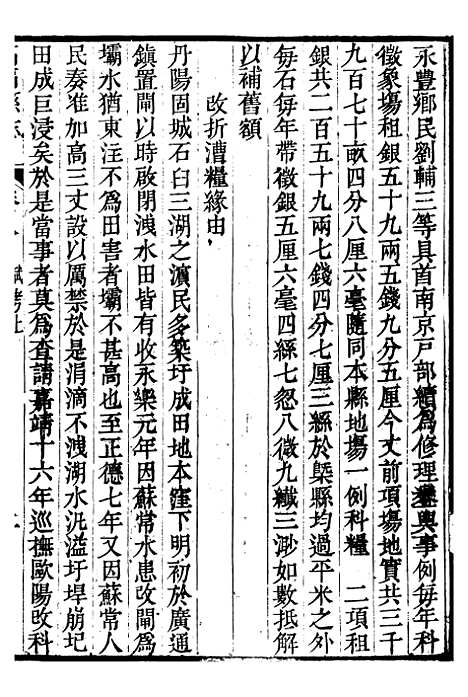 永豐鄉民劉輔三等具首南京戶部續爲修理輿事例每年科
徵象塲租銀五十九兩五錢九分五厘今丈前項塲地實共三千
九百七十畝四分八厘六毫隨同本縣地塲一例科糧　二項租
銀共二百五十九兩七錢四分七厘三絲於槩縣均過平米之外
每石每年帶徵銀五厘六毫四絲七忽八微九纖三渺如數抵解
以補舊額
改折漕糧緣由
丹陽固城石臼三湖之濵民多築圩成田地本窪下明初於廣通
鎮置閘以時啟閉洩水田皆有收永樂元年因蘇常水患改閘爲
壩水猶東注不爲田害者壩不甚高也至正德七年又因蘇常人
民奏准加高三丈設以厲禁於是涓滴不洩湖水汎溢圩埠崩圮
田成巨浸矣於是當事者莫爲查請嘉靖十六年巡撫歐陽改科